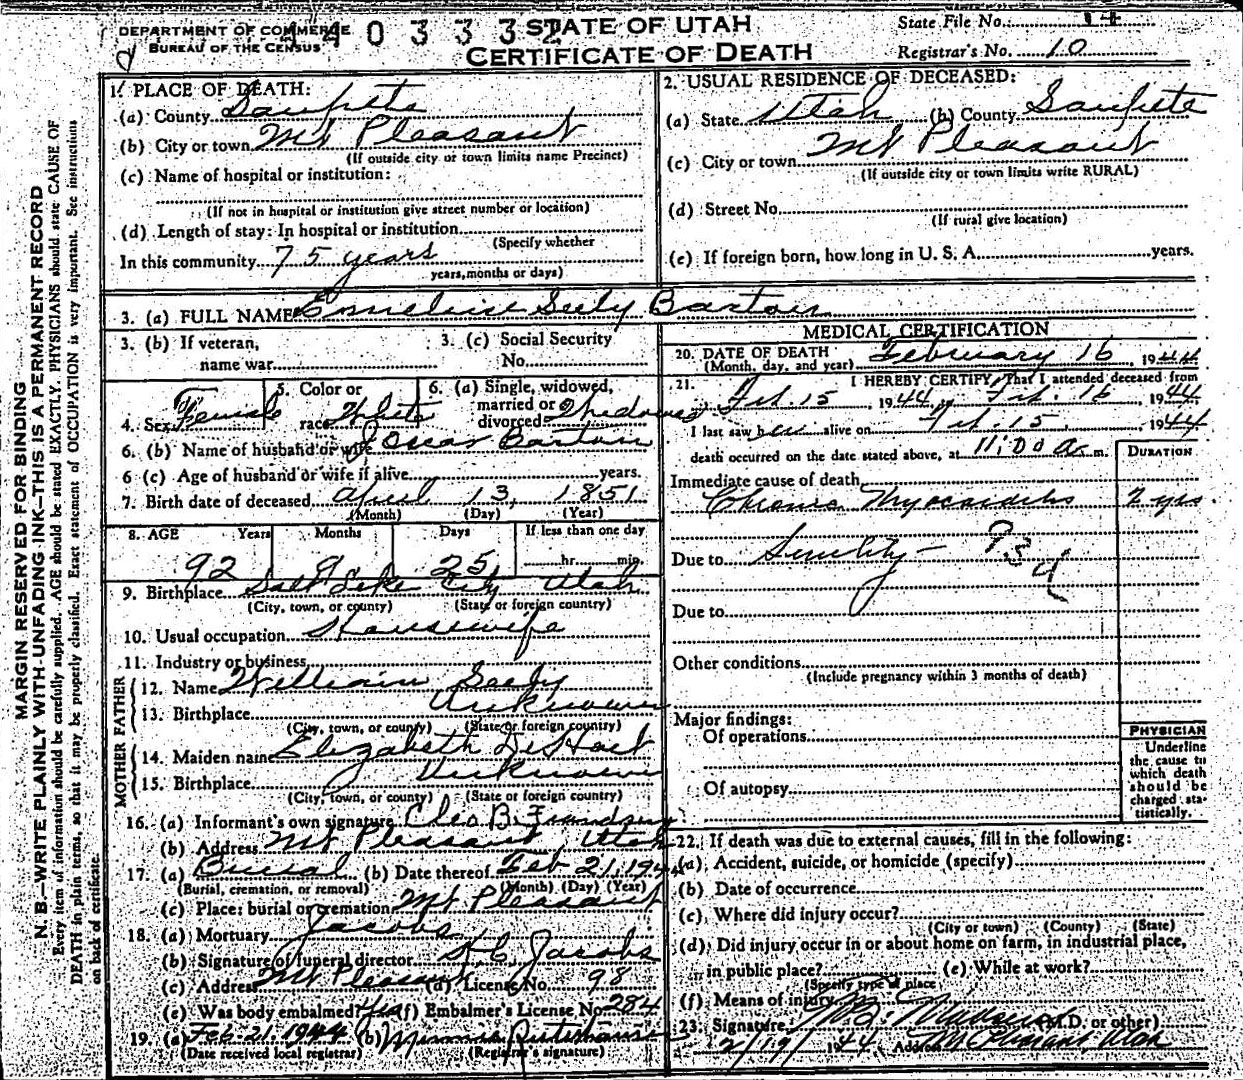 DEPARTMENT OF COMMERCE
BUREAU OF THE CENSUS
440333
STATE OF UTAH
CERTIFICATE OF DEATH
State File No. 14
Registrar's No. 10
MARGIN RESERVED FOR BINDING
N. B.—WRITE PLAINLY WITH UNFADING INK—THIS IS A PERMANENT RECORD
Every item of information should be carefully supplied. AGE should be stated EXACTLY. PHYSICIANS should state CAUSE OF
DEATH in plain terms, so that it may be properly classified. Exact statement of OCCUPATION is very important. See instructions
on back of certificate.
1. PLACE OF DEATH:
(a) County Sanpete
(b) City or town Mt Pleasant
(If outside city or town limits name Precinct)
(c) Name of hospital or institution:
(If not in hospital or institution give street number or location)
(d) Length of stay: In hospital or institution
(Specify whether
In this community 75 years
years, months or days)
2. USUAL RESIDENCE OF DECEASED:
(a) State Utah (b) County Sanpete
(c) City or town Mt Pleasant
(If outside city or town limits write RURAL)
(d) Street No.
(If rural give location)
(e) If foreign born, how long in U. S. A. years.
3. (a) FULL NAME Emeline Seely Barton
3. (b) If veteran,
name war
3. (c) Social Security
No.
4. Sex Female
5. Color or
race White
6. (a) Single, widowed,
married or
divorced Widowed
6. (b) Name of husband or wife Oscar Barton
6 (c) Age of husband or wife if alive years.
7. Birth date of deceased April 13, 1851
(Month) (Day) (Year)
8. AGE Years Months Days If less than one day
92 9 25 hr. min.
9. Birthplace Salt Lake City Utah
(City, town, or county) (State or foreign country)
10. Usual occupation Housewife
11. Industry or business
FATHER
12. Name William Seely
13. Birthplace Unknown
(City, town, or county) (State or foreign country)
MOTHER
14. Maiden name Elizabeth DeHart
15. Birthplace Unknown
(City, town, or county) (State or foreign country)
16. (a) Informant's own signature Cleo B.
(b) Address Mt Pleasant, Utah
17. (a) Burial (b) Date thereof Feb 21, 1944
(Burial, cremation, or removal) (Month) (Day) (Year)
(c) Place: burial or cremation Mt Pleasant
18. (a) Mortuary Jacobs
(b) Signature of funeral director Jacobs
(c) Address Mt Pleasant (d) License No. 98
(e) Was body embalmed? Yes (f) Embalmer's License No. 284
19. (a) Feb. 21, 1944 (b) Minnie
(Date received local registrar) (Registrar's signature)
MEDICAL CERTIFICATION
20. DATE OF DEATH February 16, 1944
(Month, day, and year)
21. I HEREBY CERTIFY, That I attended deceased from
Feb. 15 1944, Feb. 16 1944
I last saw her alive on Feb. 15 1944
death occurred on the date stated above, at 11:00 a. m.
DURATION
Immediate cause of death
Chronic Myocarditis 2 yrs.
Due to Senility - 93d
Due to
Other conditions
(Include pregnancy within 3 months of death)
Major findings:
Of operations
Of autopsy
PHYSICIAN
Underline
the cause to
which death
should be
charged sta-
tistically.
22. If death was due to external causes, fill in the following:
(a). Accident, suicide, or homicide (specify)
(b) Date of occurrence
(c). Where did injury occur?
(City or town) (County) (State)
(d) Did injury occur in or about home on farm, in industrial place,
in public place? (e) While at work?
(Specify type of place
(f) Means of injury
23. Signature Madsen (M.D. or other)
2/19/1944 Address Mt Pleasant, Utah